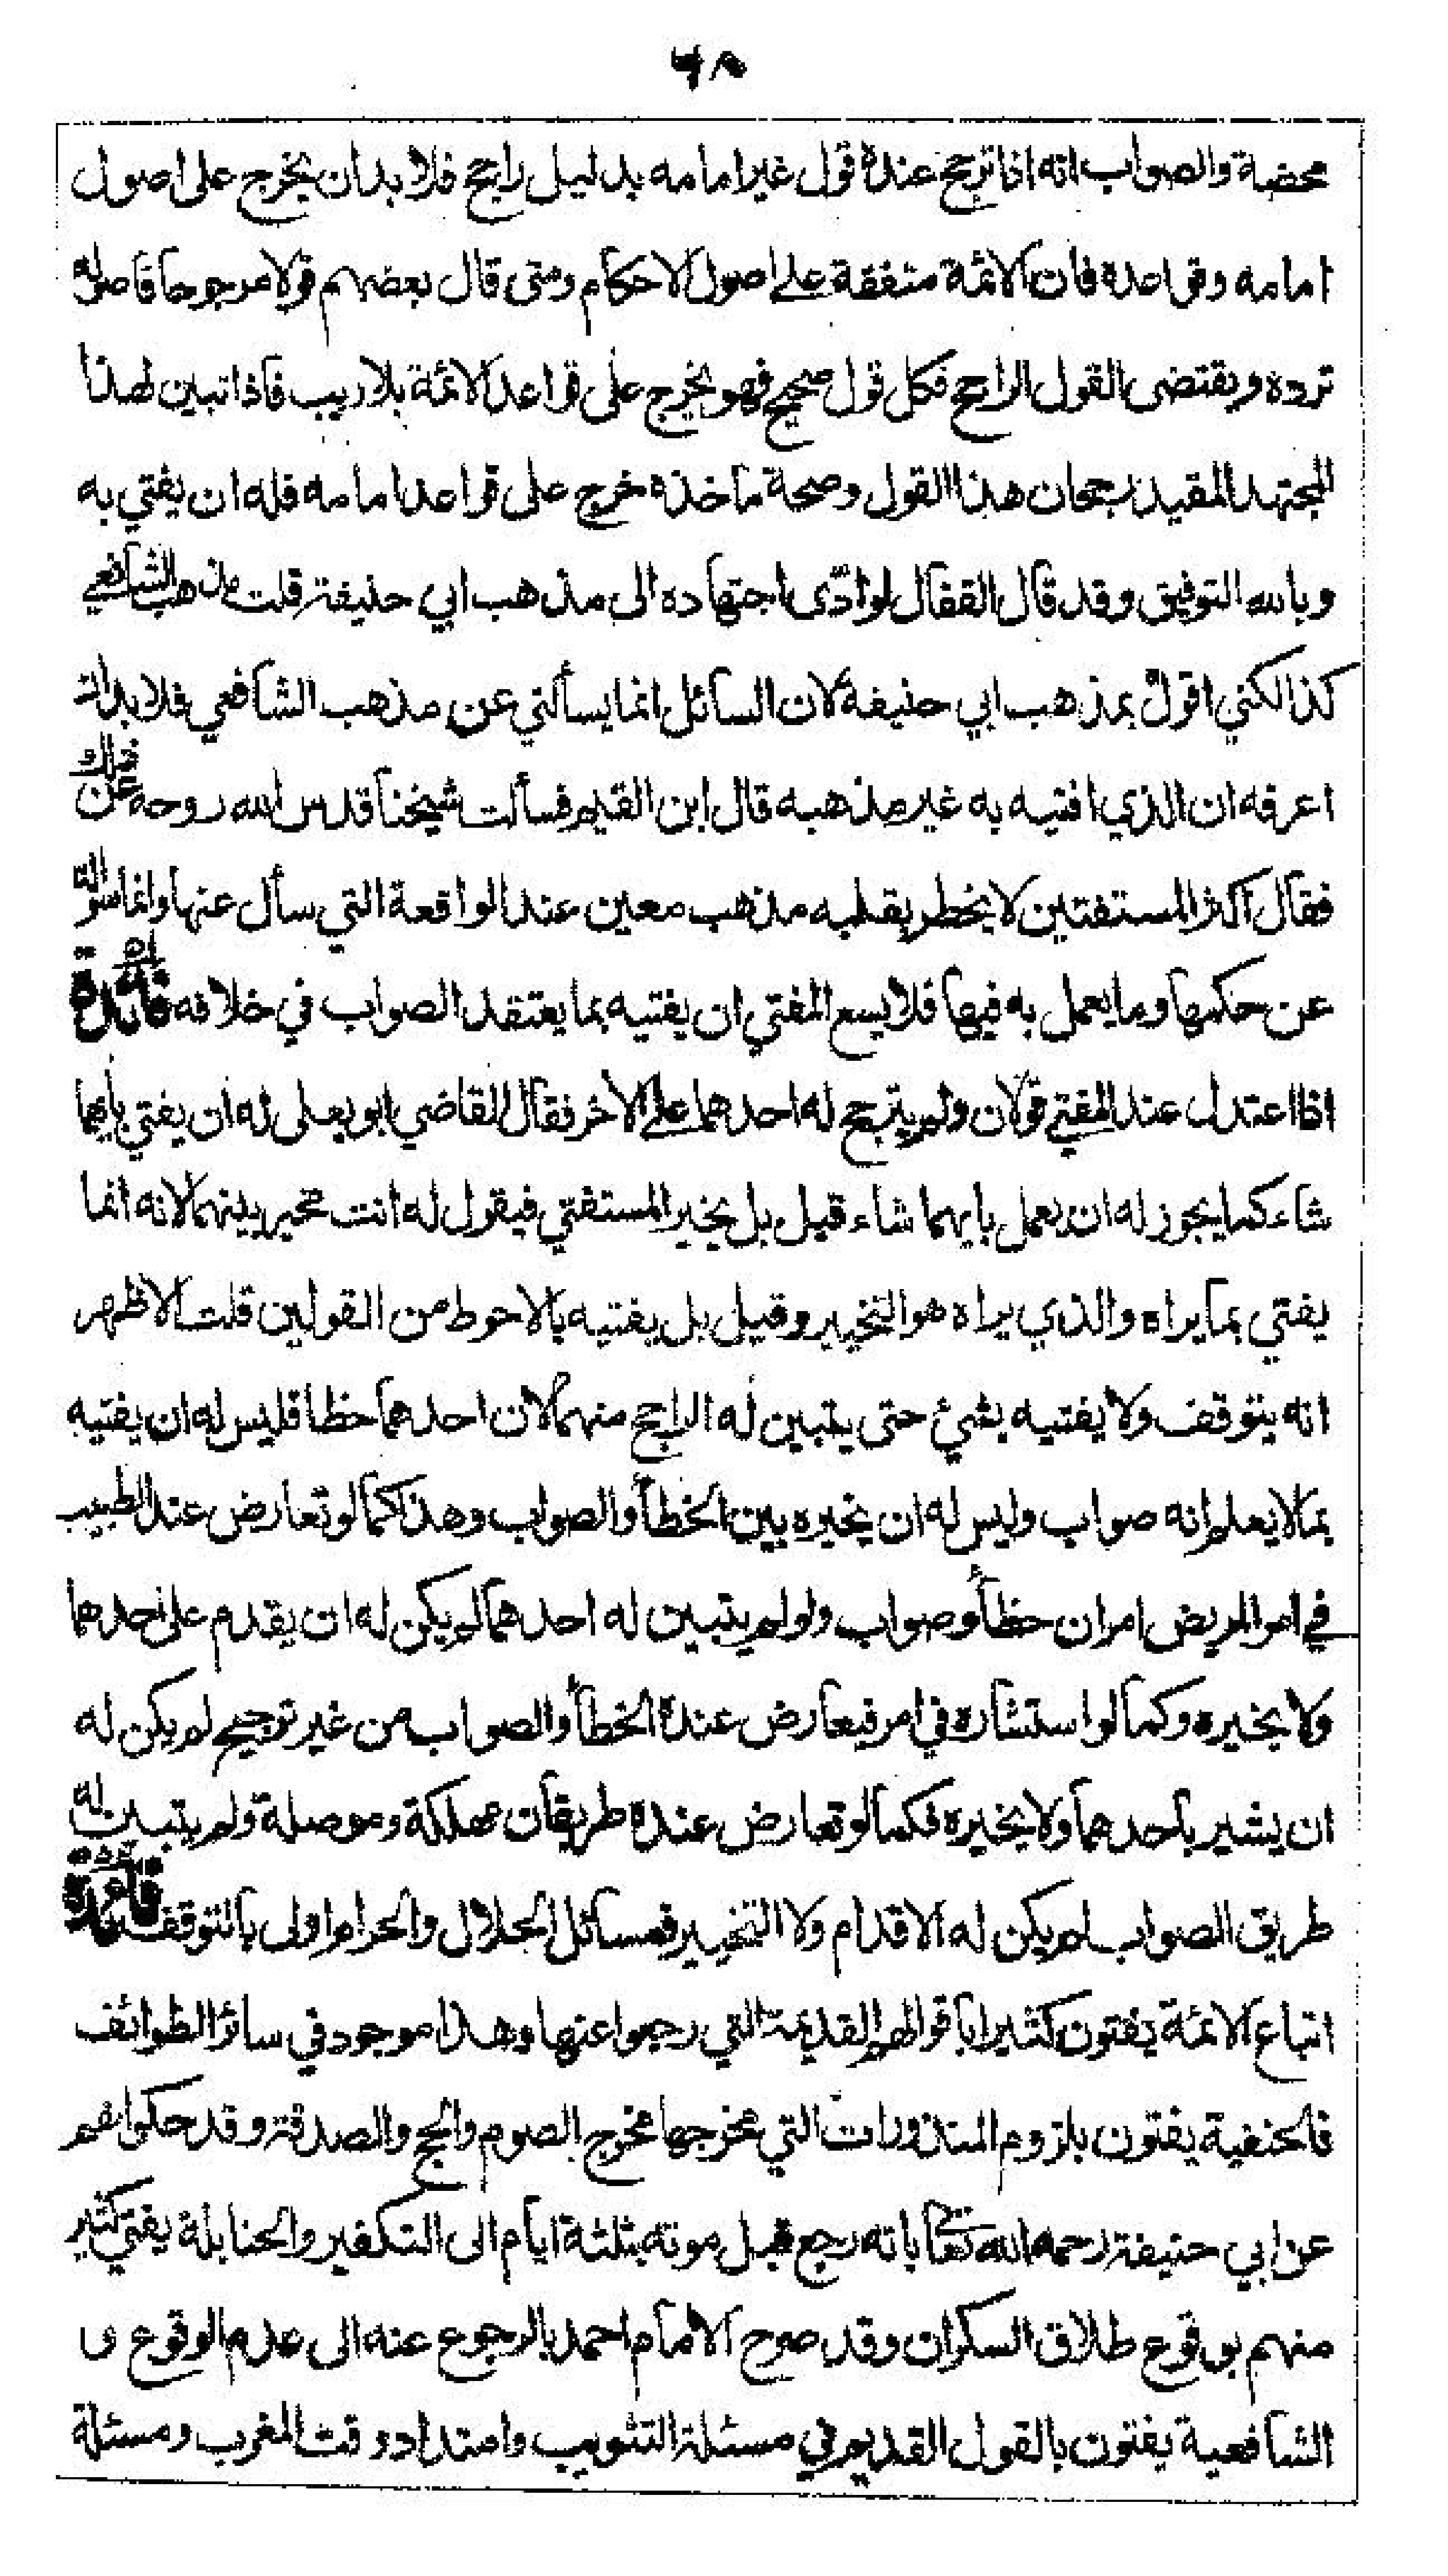 ٦٨
محضة والصواب انه اذا ترجح عنده قول غير امامه بدليل راجح فلا بد ان يخرج على اصول
امامه وقواعده فان الائمة متفقة على اصول الاحكام ومتى قال بعضهم قولا مرجوحا فاصوله
ترده ويقتضى القول الراجح فكل قول صحيح فهو يخرج على قواعد الائمة بلا ريب فاذا تبين لهذا
المجتهد المقيد رجحان هذا القول وصحة مأخذه خرج على قواعد امامه فله ان يفتي به
وبالله التوفيق وقد قال القفال لو ادّى اجتهاده الى مذهب ابي حنيفة قلت مذهب الشافعي
كذا لكني اقول بمذهب ابي حنيفة لان السائل انما يسألني عن مذهب الشافعي فلا بد ان
اعرفه ان الذي افتيه به غير مذهبه قال ابن القيم فسألت شيخنا قدس الله روحه عن ذلك
فقال اكثر المستفتين لا يخطر بقلبه مذهب معين عند الواقعة التي سأل عنها وانما سواله
عن حكمها وما يعمل به فيها فلا يسع المفتي ان يفتيه بما يعتقد الصواب في خلافه فائدة
اذا اعتدل عند المفتي قولان ولم يترجح له احدهما على الاخر فقال القاضي ابو يعلى له ان يفتي بأيهما
شاء كما يجوز له ان يعمل بأيهما شاء قيل بل يخير المستفتي فيقول له انت مخير بينهما لانه انما
يفتي بما يراه والذي يراه هو التخيير وقيل بل يفتيه بالاحوط من القولين قلت الاظهر
انه يتوقف ولا يفتيه بشئ حتى يتبين له الراجح منهما لان احدهما خطا فليس له ان يفتيه
بما لا يعلم انه صواب وليس له ان يخيره بين الخطأ والصواب وهذا كما لو تعارض عند الطبيب
في امر المريض امران خطأ وصواب ولو لم يتبين له احدهما لم يكن له ان يقدم على احدهما
ولا يخيره وكما لو استشاره في امر فيعارض عنده الخطأ والصواب من غير ترجيح لم يكن له
ان يشير باحدهما ولا يخيره فكما لو تعارض عنده طريقان مهلكة وموصلة ولم يتبين له
طريق الصواب لم يكن له الاقدام ولا التخيير فمسائل الحلال والحرام اولى بالتوقف فائدة
اتباع الائمة يفتون كثيرا باقوالهم القديمة التي رجعوا عنها وهذا موجود في سائر الطوائف
فالحنفية يفتون بلزوم المنذورات التي مخرجها مخرج الصوم والحج والصدقة وقد حكوا هم
عن ابي حنيفة رحمه الله تعالى بانه رجع قبل موته بثلثة ايام الى التكفير والحنابلة يفتي كثير
منهم بوقوع طلاق السكران وقد صرح الامام احمد بالرجوع عنه الى عدم الوقوع و
الشافعية يفتون بالقول القديم في مسئلة التثويب وامتداد وقت المغرب ومسئلة